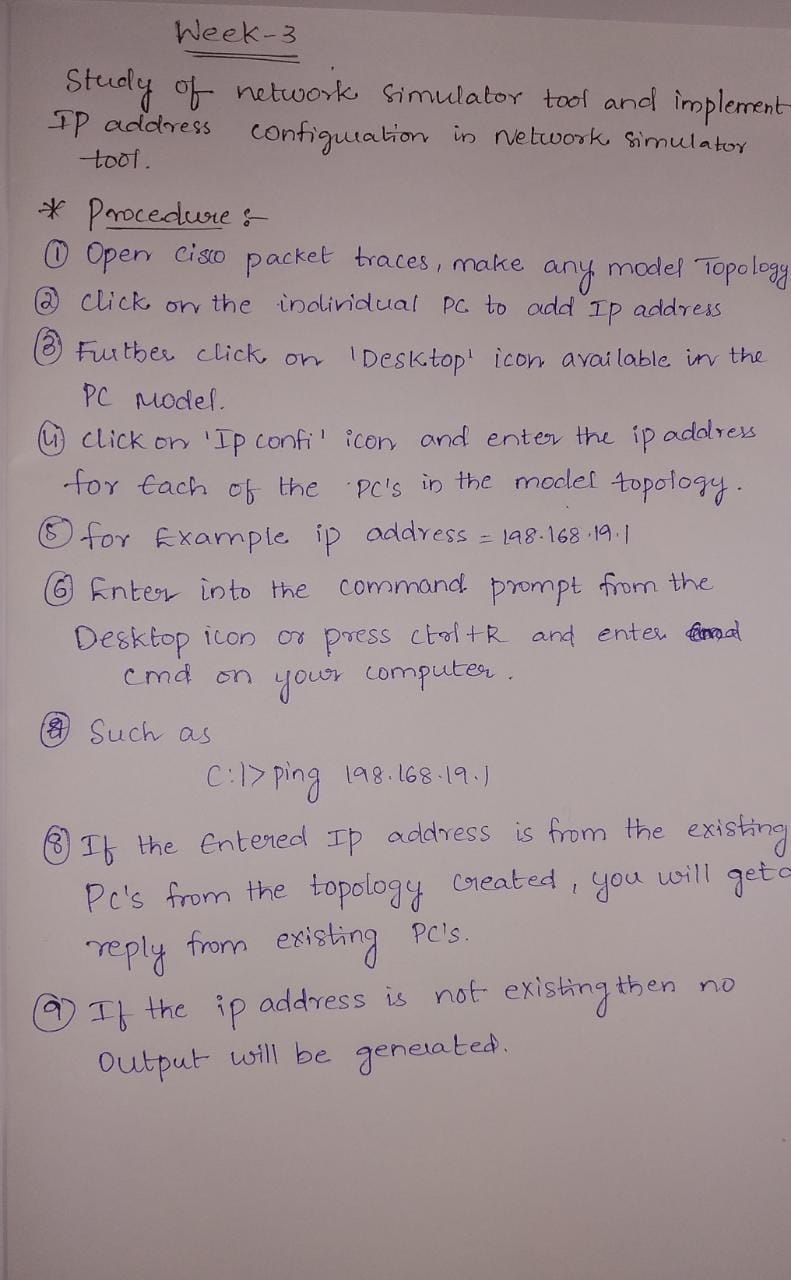 Week-3
Study of network simulator tool and implement
IP address configuration in Network simulator
tool.
* Procedure :-
① Open cisco packet traces, make any model Topology
② click on the individual PC to add Ip address
③ Further click on 'Desktop' icon available in the
PC Model.
④ click on 'Ip confi' icon and enter the ip address
for Each of the PC's in the model topology.
⑤ for Example ip address = 198.168.19.1
⑥ Enter into the command prompt from the
Desktop icon or press ctrl+R and enter
cmd on your computer.
⑦ Such as
C:\>ping 198.168.19.1
⑧ If the Entered Ip address is from the existing
PC's from the topology created, you will get a
reply from existing PC's.
⑨ If the ip address is not existing then no
Output will be generated.